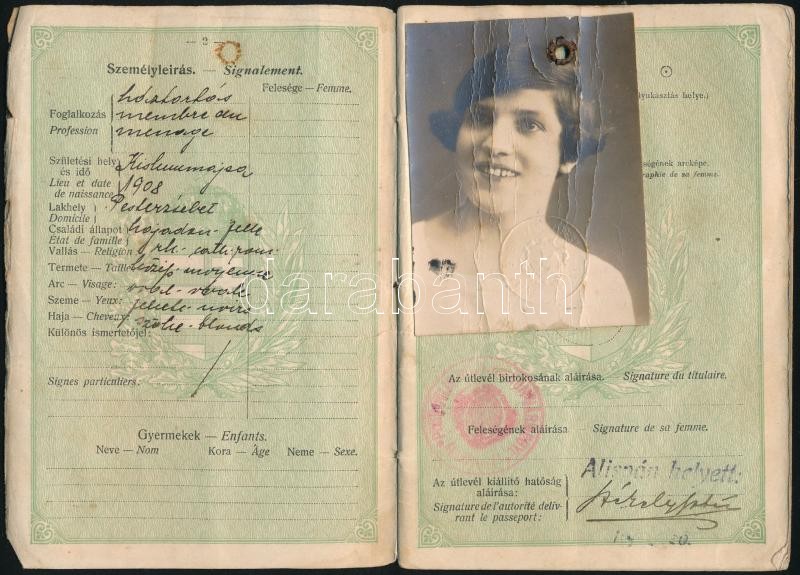 — 3 —
Személyleírás. — Signalement.
Felesége — Femme.
háztartás
Foglalkozás membre du
Profession menage
Születési hely Kiskunmajsa
és idő
Lieu et date 1908
de naissance
Lakhely Pesterzsébet
Domicile
Családi állapot hajadon-fille
État de famille
Vallás — Religion rk. cath. rom.
Termete — Taille közép-moyenne
Arc — Visage: ovál-ovale
Szeme — Yeux: fekete-noirs
Haja — Cheveux: szőke-blonds
Különös ismertetőjel:
Signes particuliers:
Gyermekek — Enfants.
Neve — Nom Kora — Âge Neme — Sexe.
darabanth
lyukasztás helye.)
ségének arcképe.
raphie de sa femme.
Az útlevél birtokosának aláírása. Signature du titulaire.
Feleségének aláírása Signature de sa femme.
Alispán helyett:
Az útlevél kiállító hatóság
aláírása:
Signature de l'autorité déliv-
rant le passeport: